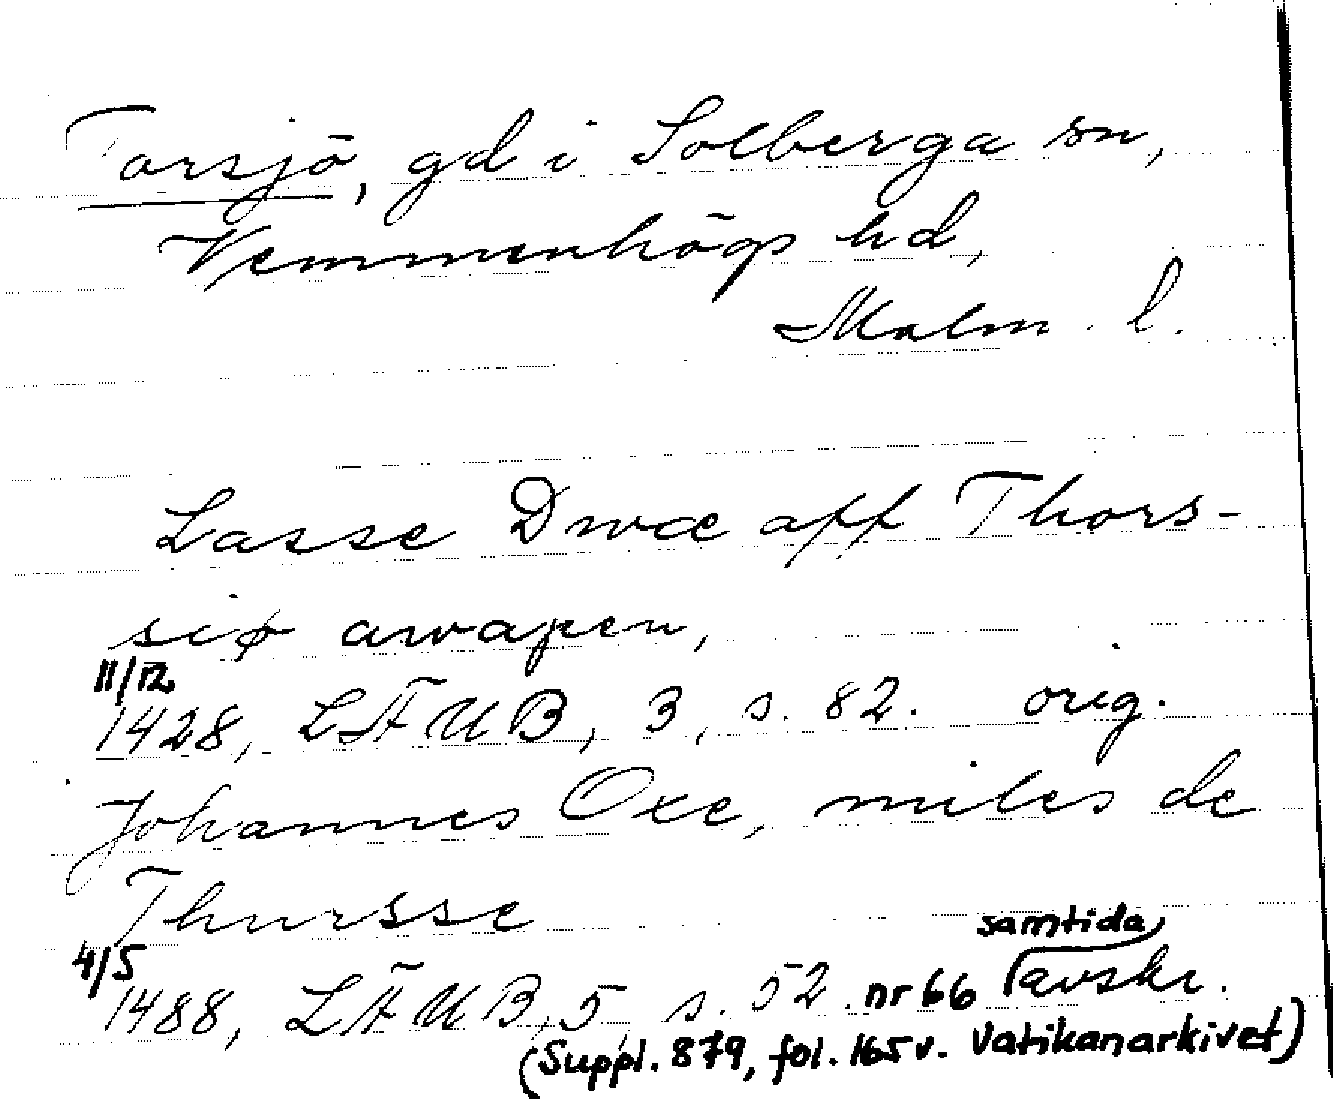 Torsjö, gd i Solberga sn,
Vemmenhögs hd,
Malm. l.
Lasse Dwæ aff Thors-
siø awapen,
11/12
1428, LÄUB, 3, s. 82. orig.
Johannes Oxe, miles de
Thursse
samtida
4/5
1488, LÄUB, 5 s. 52. nr 66 avskr.
(Suppl. 879, fol. 165v. Vatikanarkivet)